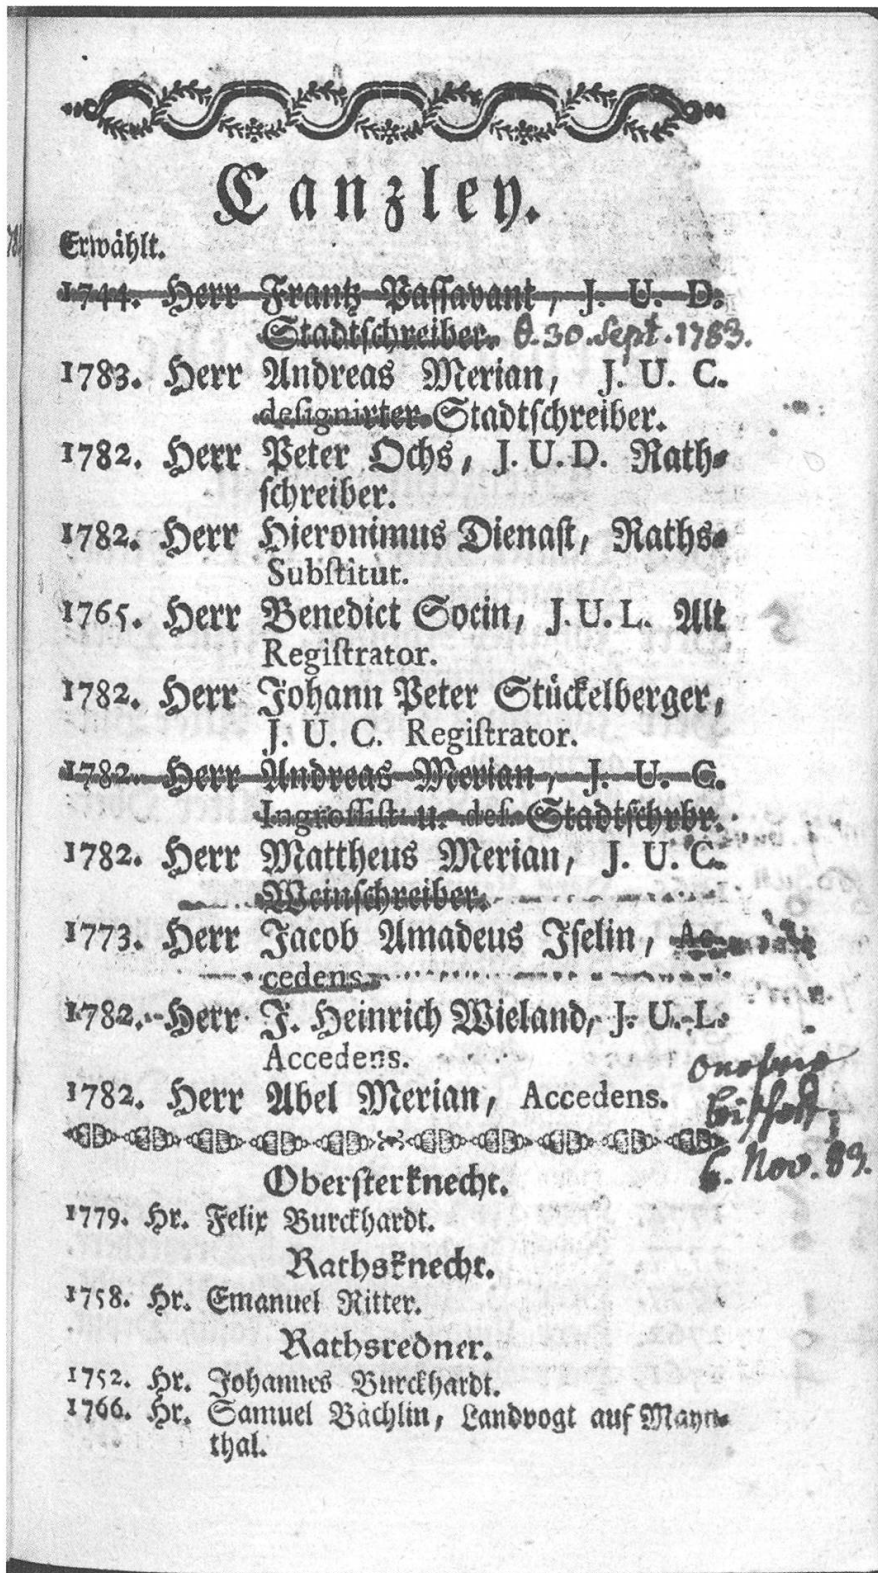 Canzley.
Erwählt.
1744. Herr Frantz Passavant, J. U. D.
Stadtschreiber. 30. Sept. 1783.
1783. Herr Andreas Merian, J. U. C.
designirter Stadtschreiber.
1782. Herr Peter Ochs, J. U. D. Rath-
schreiber.
1782. Herr Hieronimus Dienast, Raths-
Substitut.
1765. Herr Benedict Socin, J. U. L. Alt
Registrator.
1782. Herr Johann Peter Stückelberger,
J. U. C. Registrator.
1782. Herr Andreas Merian, J. U. C.
Ingrossist u. des. Stadtschrbr.
1782. Herr Mattheus Merian, J. U. C.
Weinschreiber.
1773. Herr Jacob Amadeus Iselin, Ac-
cedens.
1782. Herr J. Heinrich Wieland, J. U. L.
Accedens.
1782. Herr Abel Merian, Accedens.
6. Nov. 83.
Obersterknecht.
1779. Hr. Felix Burckhardt.
Rathsknecht.
1758. Hr. Emanuel Ritter.
Rathsredner.
1752. Hr. Johannes Burckhardt.
1766. Hr. Samuel Bächlin, Landvogt auf Mayn-
thal.